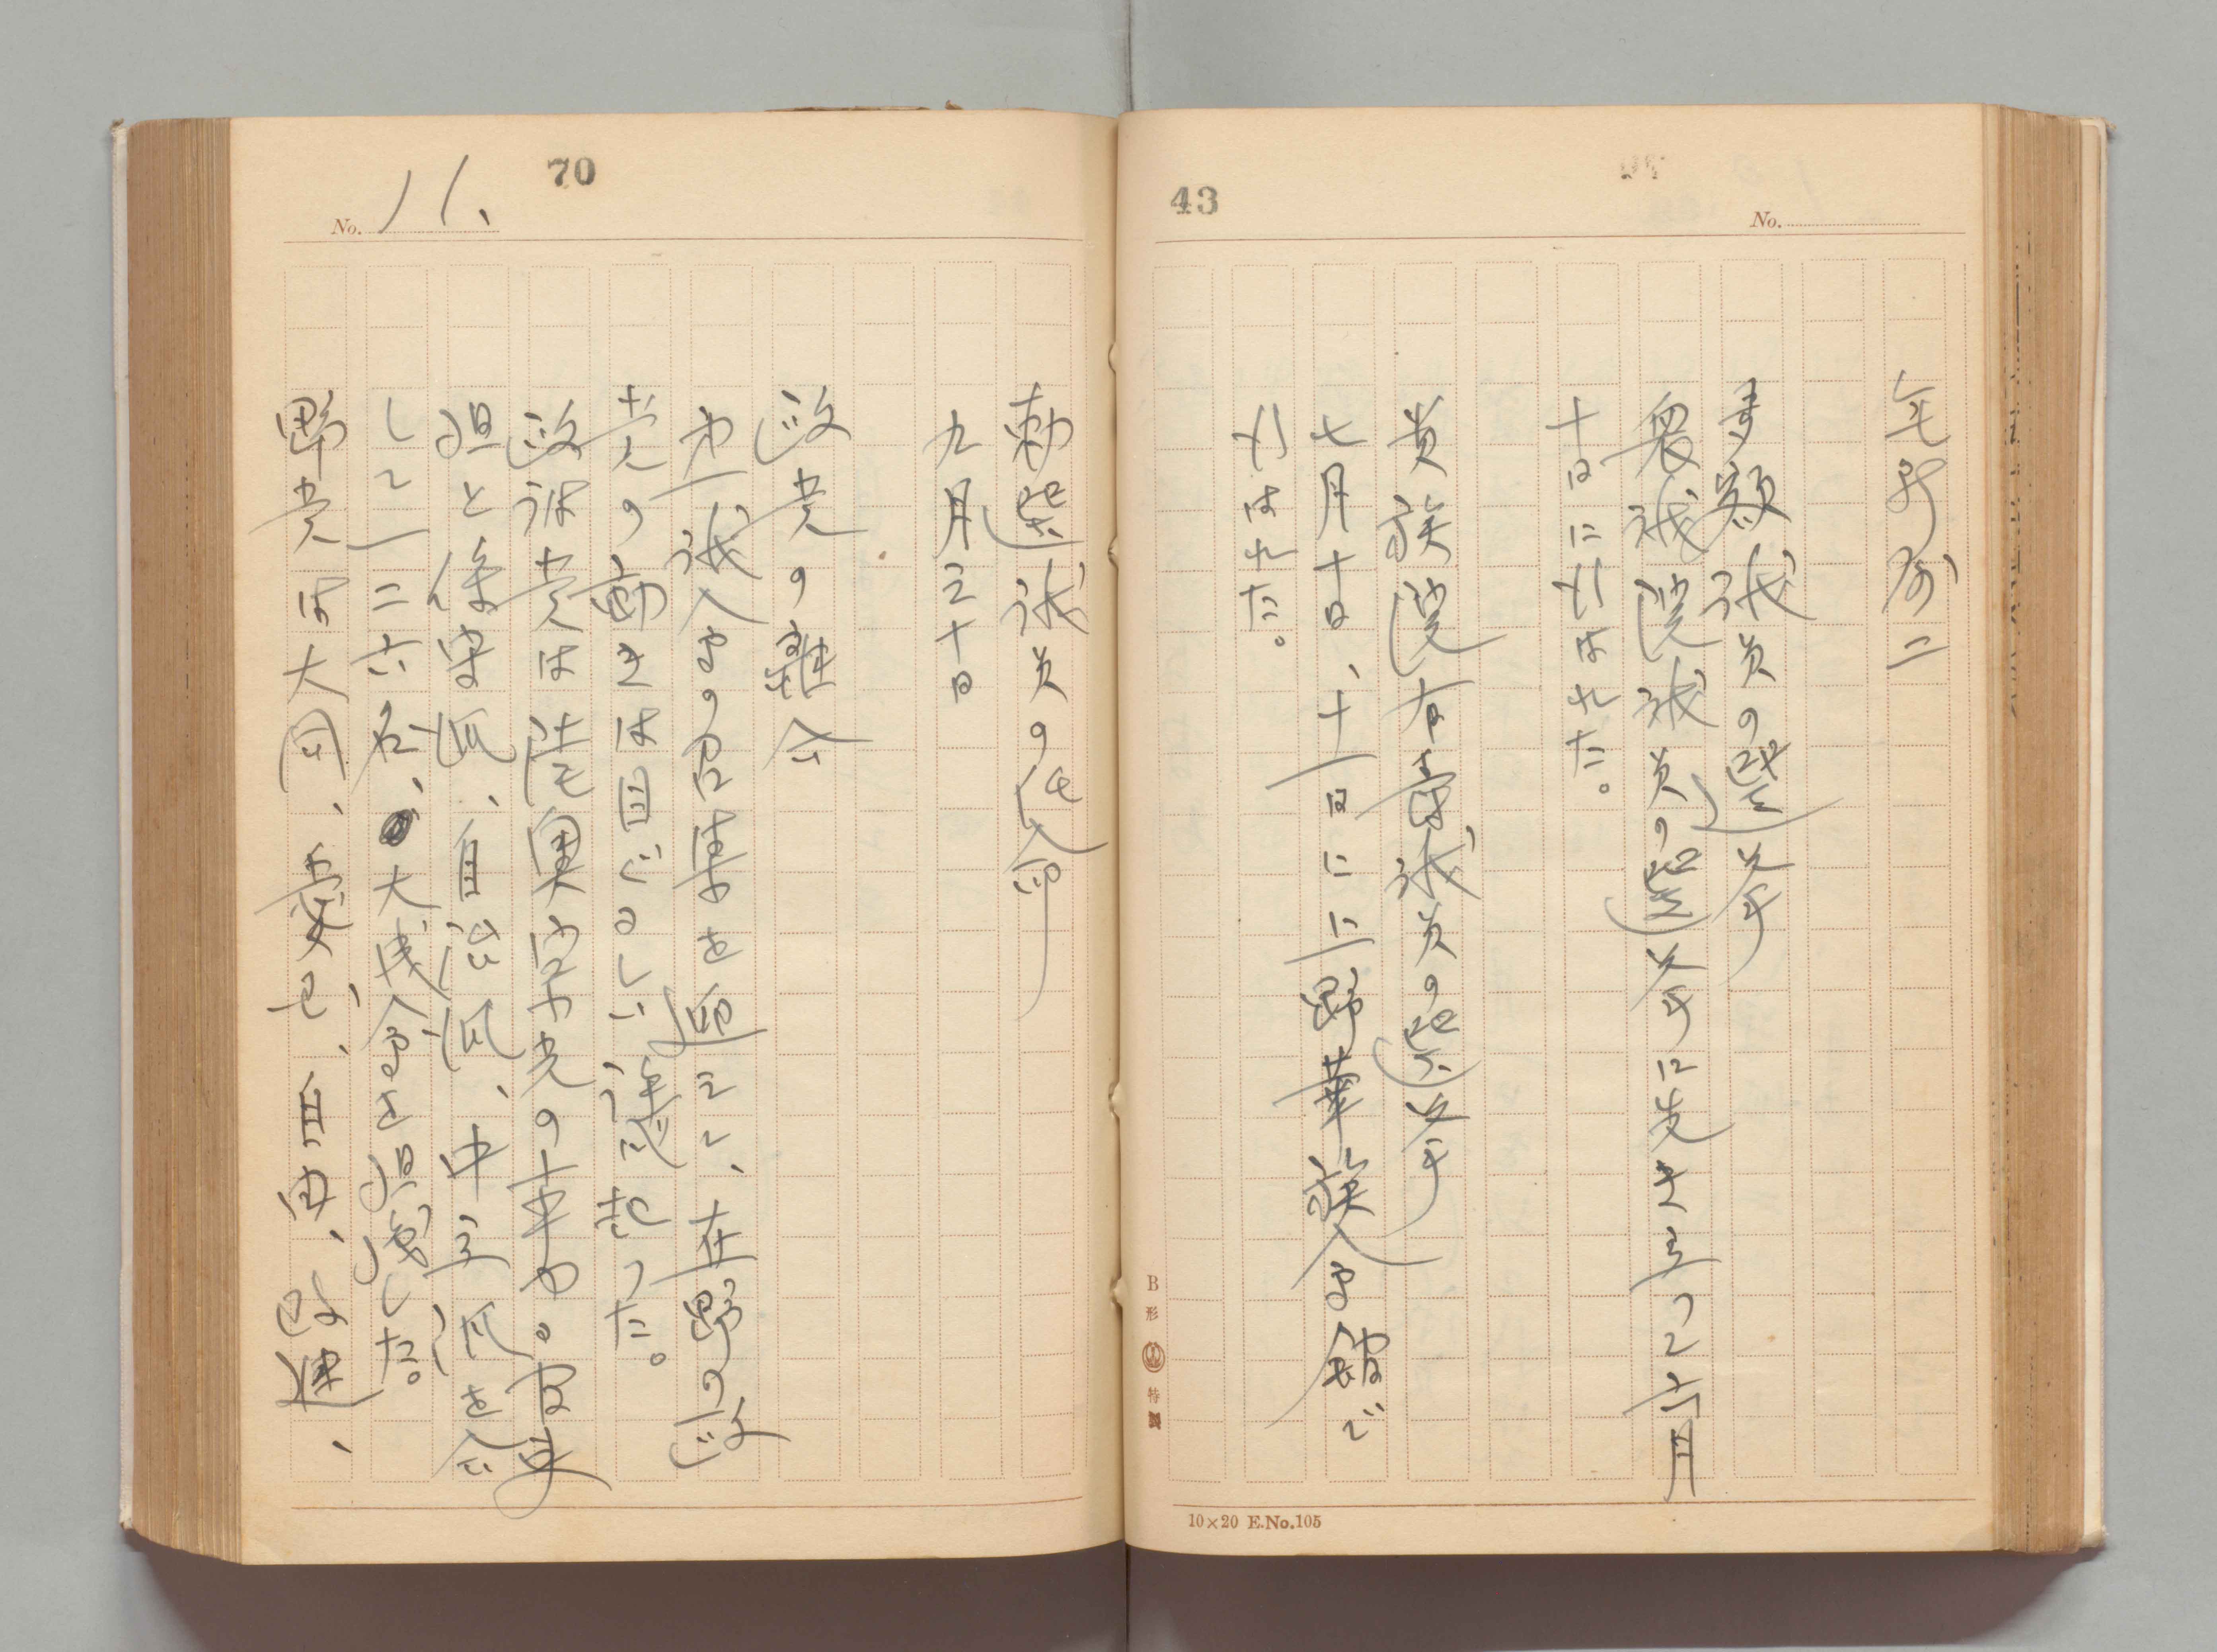 43
No.
多額議員の選挙
衆議院議員の選挙に先き立つて六月
十日に行はれた。
貴族院有爵議員の選挙
七月十日、十一日に上野華族会館で
行はれた。
B形 特製
10×20 E.No.105
70
No. 11.
勅選議員の任命
九月三十日
政党の離合
第一議会の召集を迎えて、在野の政
党の動きは目ぐるしい程起つた。
政府党は陸奥宗光の
と保守派、自治派、中立派を合
して一二六名、大成会を組織した。
野党は大同、愛国、自由、改進、